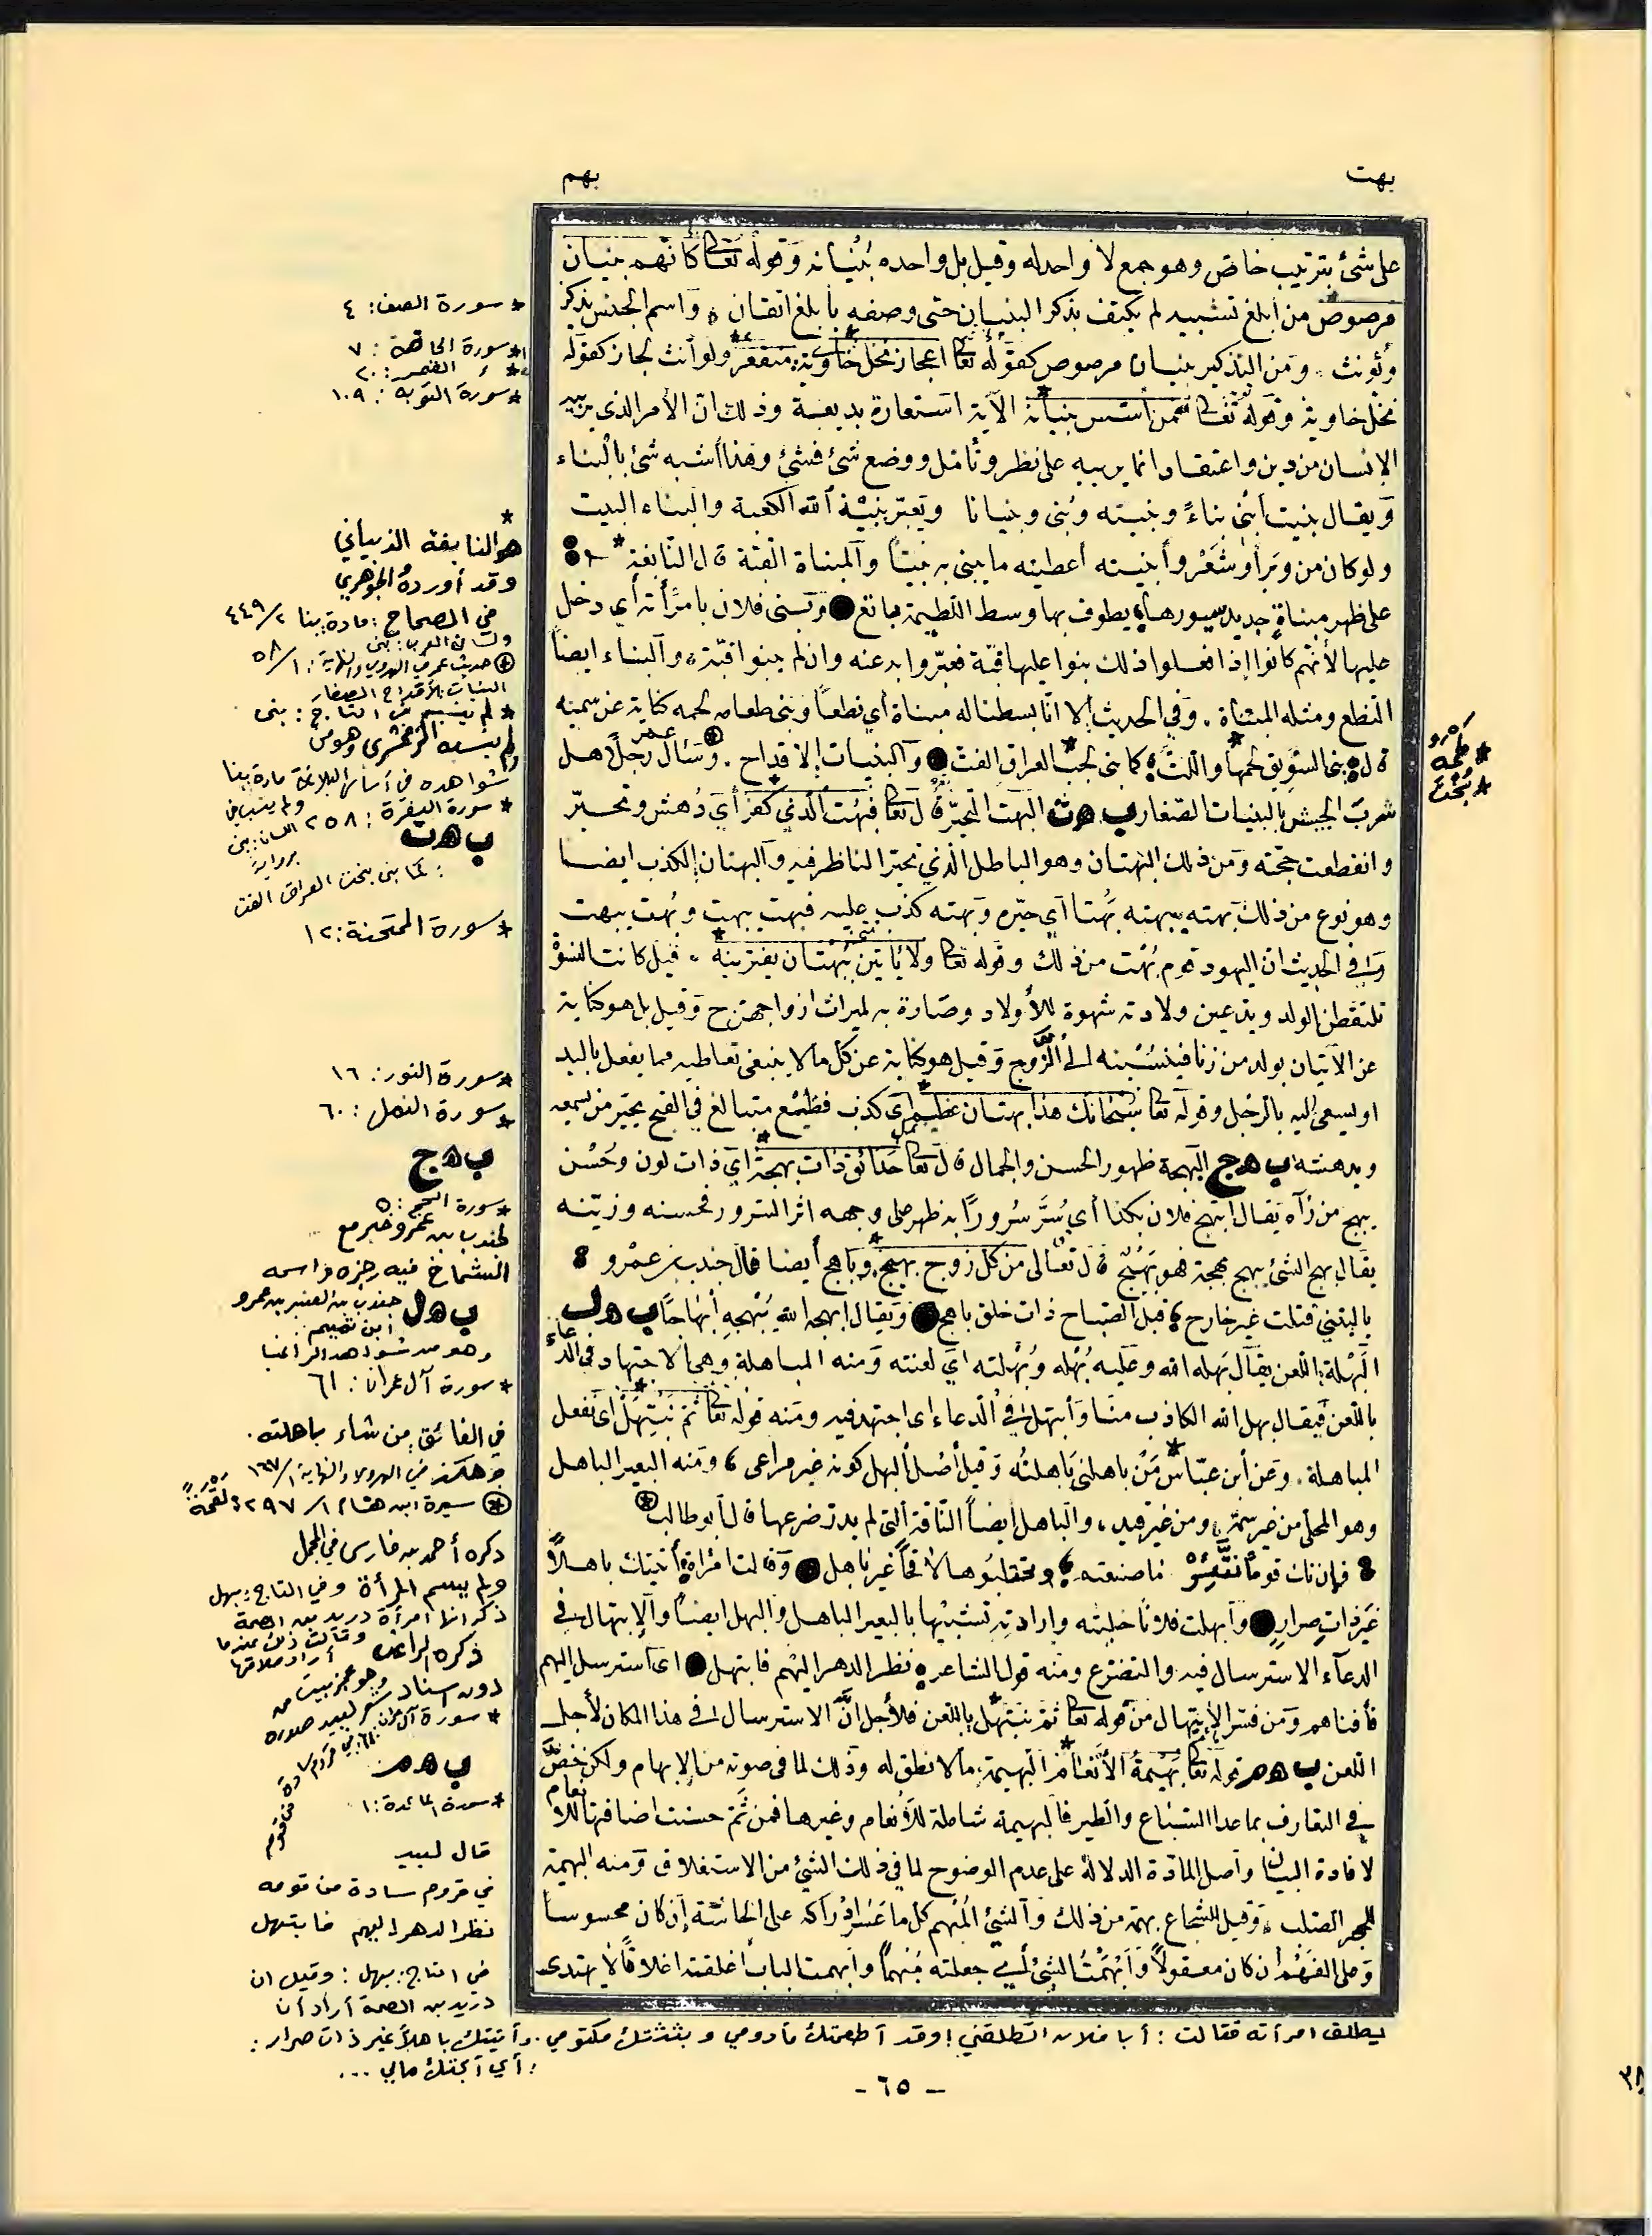 بهت
بهم
على شئ بترتيب خاص وهو جمع لا واحد له وقيل بل واحده بُنْيَانه وقوله تعالى كأنهم بنيان
مرصوص من أبلغ تشبيه لم يكتف بذكر البنيان حتى وصفه بأبلغ اتقان واسم الجنس يذكر
ويؤنث ومن التذكير بنيان مرصوص كقوله تعالى اعجاز نخل خاوية منقعر ولو أنث لجاز كقوله
نخل خاوية وقوله تعالى فمن أسس بنيانه الآية استعارة بديعة وذلك ان الأمر الذي
الإنسان من دين واعتقاد انما يربيه على نظر وتأمل ووضع شئ فشئ وهذا أشبه شئ بالبناء
ويقال بنيت أبني بناءً وبنيته وبنى وبنيانا ويعبر ببنية الله الكعبة والبناء البيت
ولو كان من وبر أو شَعْر وأبنيته أعطيته ما يبنى به بيتًا والمبناة القبة قال النابغة
على ظهر مبناةٍ جديد سيورها يطوف بها وسط اللطيمة بائع وبنى فلان بامرأته أي دخل
عليها لأنهم كانوا إذا فعلوا ذلك بنوا عليها قبة فعبّروا به عنه وان لم يبنوا قبّة والبناء ايضا
النطع ومثله المبناة وفي الحديث الا انا بسطنا له مبناة أي نطعًا وبنى طعامه لحمه كناية عن سمنه
قال بنى السويق لحمها واللتّ كما بنى بخت العراق القت والبنيات الاقداح وسأل عمر رجلا هل
شرب الجيش بالبنيات الصغار ب هت البهت التحيّر قال تعالى فبُهت الذي كفر أي دُهش وتحيّر
وانقطعت حجّته ومن ذلك البهتان وهو الباطل الذي تحيّر الناظر فيه والبهتان الكذب ايضا
وهو نوع من ذلك بهته يبهته بَهْتا أي حيّره وبهته كذب عليه فبهت يبهت وبُهت يبهت
وفي الحديث ان اليهود قوم بُهْت من ذلك وقوله تعالى ولا يأتين ببُهْتان يفترينه قيل كانت النسوْ
تلتقطن الولد ويدعين ولادته شهوة للأولاد وصارة به لميراث ازواجهن ح وقيل بل هو كناية
عن الاتيان بولد من زنا فينسبنه الى الزّوج وقيل هو كناية عن كل ما لا ينبغي تعاطيه مما يفعل باليد
او يسعى اليه بالرجل وقوله تعالى سُبْحانك هذا بهتان عظيم أي كذب فظيع متبالغ في القبح يحيّر من سمعه
ويدهشه ب هج البهجة ظهور الحسن والجمال قال تعالى حدائق ذات بهجة أي ذات لون وحُسْن
يبهج من رآه يقال ابتهج فلان بكذا أي سُرَّ سُرورًا به ظهر على وجهه اثر السرور فحسنه وزيّنه
يقال بهج الشئ يبهج بهجة فهو بَهيج قال تعالى من كل زوج بهيج وباهج أيضا قال جندب بن عمْرو
يا ليتني قتلت غير خارج قبل الصباح ذات خلق باهج ويقال ابهجه الله يُبْهجه إبْهاجًا ب هل
البُهْلة اللعن يقال بهله الله وعليه بُهْله وبُهْلته أي لعنته ومنه المباهلة وهي الاجتهاد في الدعاء
باللعن فيقال بهل الله الكاذب منّا وابتهل في الدعاء اى اجتهد فيه ومنه قوله تعالى ثم نَبْتهل أى نفعل
المباهلة وعن ابن عبّاس من باهلني باهلته وقيل أصل البهل كونه غير مراعى ومنه البعير الباهل
وهو المخلى من غير سمة ومن غير قيد والباهل ايضًا الناقة التي لم يدرّ ضرعها قال أبو طالب
فإن نك قومًا نقّئرْ ما صنعتم وتحتلبوها لاقحًا غير باهل وقالت امْرأة أتيتك باهلاً
غير ذات صرارٍ وأبهلت فلانًا خليته وارادته تشبيهًا بالبعير الباهل والبهل ايضًا والابتهال في
الدعاء الاسترسال فيه والتضرع ومنه قول الشاعر نظر الدهر اليهم فابتهل اى استرسل اليهم
فأفناهم ومن فسّر الابتهال من قوله تعالى ثم نبتهل باللعن فلأجل انّ الاسترسال في هذا المكان لأجل
اللعن ب هم قوله تعالى بَهيمةُ الأنعام البهيمة ما لا نطق له وذلك لما في صوته من الإبهام ولكن خصَّ
في التعارف بما عدا السّباع والطير فالبهيمة شاملة للأنعام وغيرها فمن ثَمّ حسنت اضافتها للأنعام
لافادة البيان وأصل المادّة الدلالة على عدم الوضوح لما في ذلك الشئ من الاستغلاق ومنه البهمة
للحجر الصلب وقيل للشجاع بهمة من ذلك والشئ المُبْهم كل ما عَسُر ادْراكه على الحاسّة إن كان محسوسا
وعلى الفَهْم ان كان معقولاً وأبْهَمْتُ الشئ أي جعلته مُبْهمًا وأبهمت الباب أغلقته اغلاقًا لا يهتدى
* سورة الصف: ٤
* سورة الحاقة: ٧
* القمر: ٢٠
* سورة التوبة: ١٠٩
*
هو النابغة الذبياني
وقد أورده الجوهري
في الصحاح: مادة بنا ٢/٤٤٩
ولسان العرب: بنى
حديث عمر في الهروي والنهاية: ١/٥٨
البنيات: الأقداح الصغار
* لم ينسبه في التاج: بنى
ولم ينسبه الزمخشري وهو من
شواهده في أساس البلاغة مادة بنا
* سورة البقرة: ٢٥٨
ولم ينسبه في اللسان: بنى برواية
ب هت
: كما بنى بخت العراق القت
* سورة الممتحنة: ١٢
* سورة النور: ١٦
* سورة النمل: ٦٠
ب هج
* سورة الحج: ٥
لجندب بن عمرو خبر مع
الشماخ فيه رجزه واسمه
جندب بن العنبر بن عمرو
ابن تميم
ب هل
وهو من شواهد الراغب
* سورة آل عمران: ٦١
في الفائق: من شاء باهلته.
وهكذا في الهروي والنهاية ١/١٦٧
سيرة ابن هشام ١/٢٩٧
ذكره أحمد بن فارس في المجمل
ولم يسم المرأة وفي التاج: بهل
ذكر انها امرأة دريد بن الصمة
وقالت ذلك عندما
أراد طلاقها
ذكره الراغب
دون اسناد
وهو عجز بيت من
شعر لبيد صدره
* سورة آل عمران: ٦١
في قروم سادة من قومه
ب هم
* سورة المائدة: ١
قال لبيد
في قروم سادة من قومه
نظر الدهر اليهم فابتهل
في التاج: بهل: وقيل ان
دريد بن الصمة أراد أن
ليطلق امرأته فقالت: أبا فلان اتطلقني! وقد أطعمتك مأدومي وبثثتك مكتومي. وأتيتك باهلاً غير ذات صرار:
: أي أبحتك مالي ...
- ٦٥ -